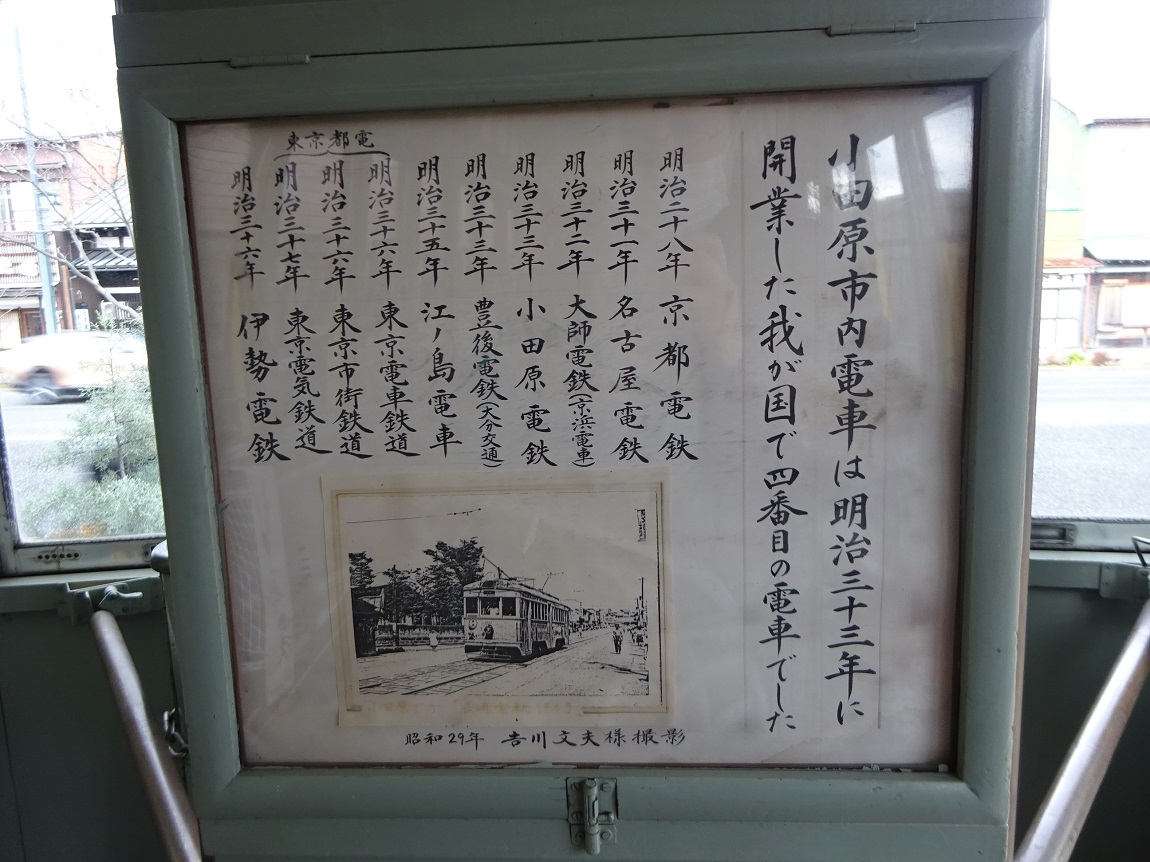 小田原市内電車は明治三十三年に
開業した我が国で四番目の電車でした
明治二十八年 京都電鉄
明治三十一年 名古屋電鉄
明治三十二年 大師電鉄(京浜電車)
明治三十三年 小田原電鉄
明治三十三年 豊後電鉄(大分交通)
明治三十五年 江ノ島電車
東京都電
明治三十六年 東京電車鉄道
明治三十六年 東京市街鉄道
明治三十七年 東京電気鉄道
明治三十六年 伊勢電鉄
昭和29年 吉川文夫様撮影